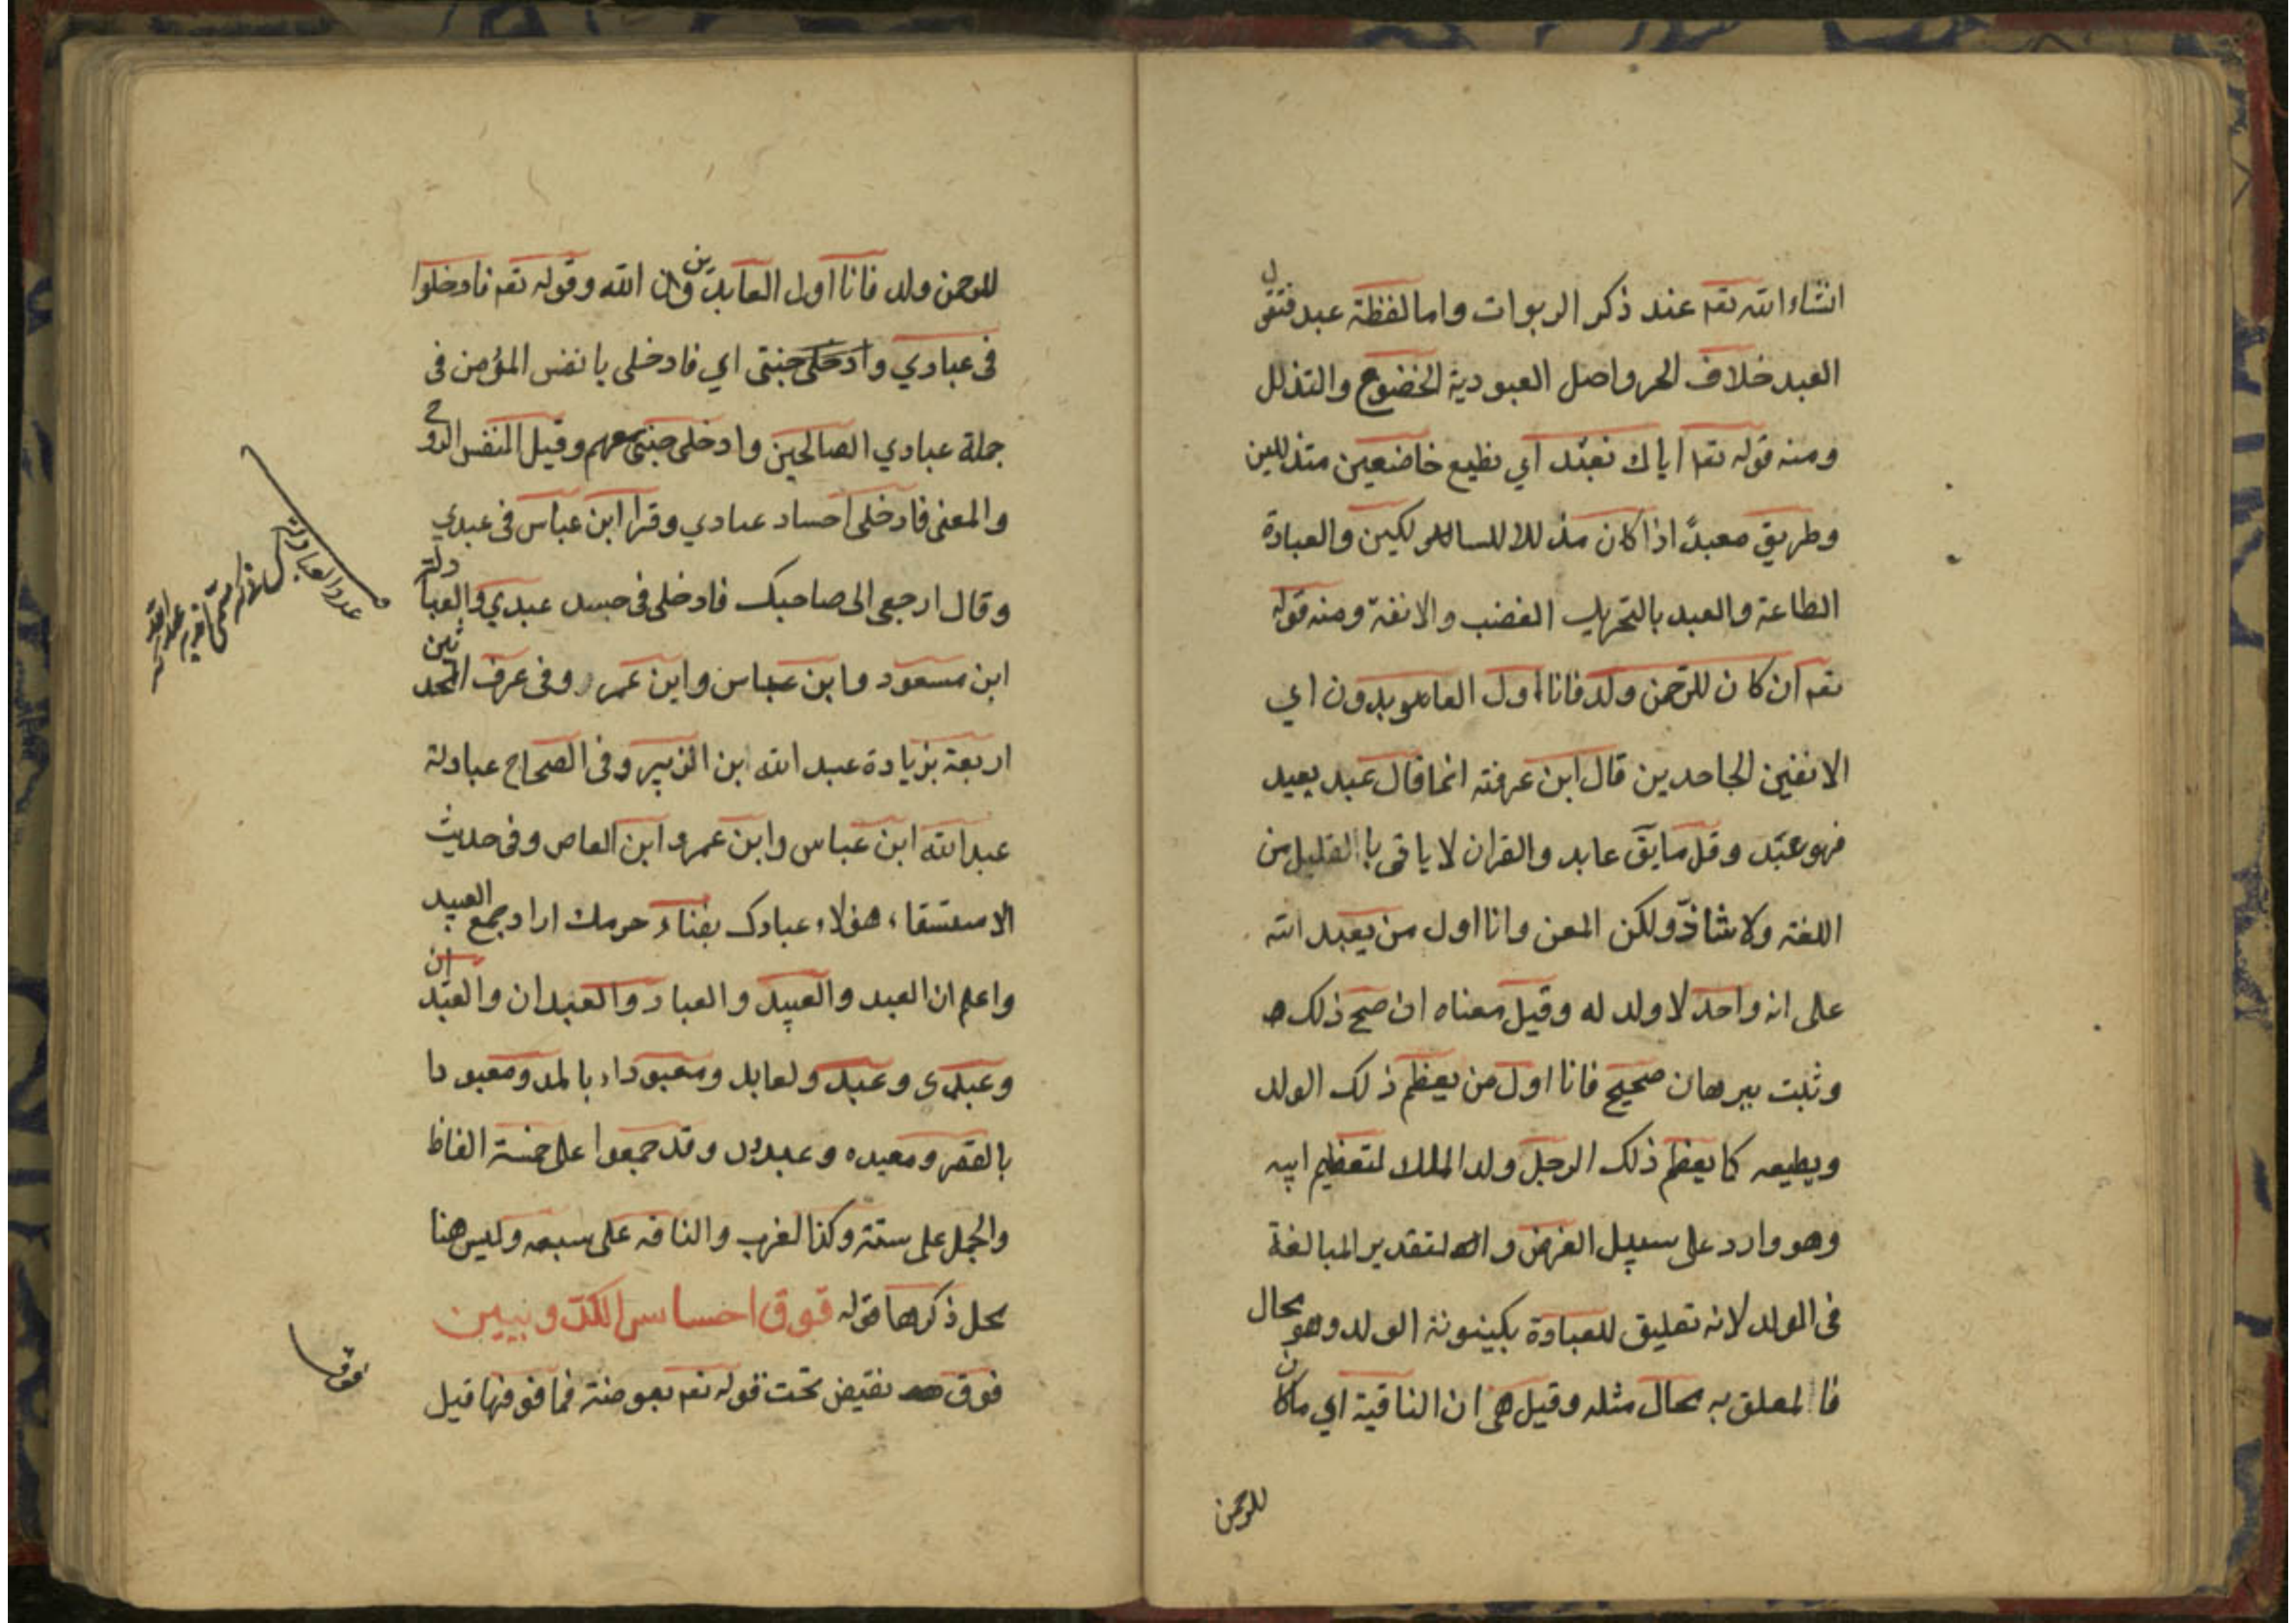 انشاء الله تعم عند ذكر الربوات واما لفظة عبد فنقول
العبد خلاف الحر واصل العبودية الخضوع والتذلل
ومنه قوله تعم اياك نعبد اي نطيع خاضعين متذللين
وطريق معبد اذا كان مذللا للسالكين والعبادة
الطاعة والعبد بالتحريك الغضب والانفة ومنه قوله
تعم ان كان للرحمن ولد فانا اول العابدون اي
الانفين الجاحدين قال ابن عرفته انما قال عبد يعبد
فهو عبد وقل ما يق عابد والقران لا ياتى با القليل من
اللغة ولا شاذ ولكن المعن وانا اول من يعبد الله
على انه واحد لا ولد له وقيل معناه ان صح ذلك
وثبت ببرهان صحيح فانا اول من يعظم ذلك الولد
ويطيعه كما يعظم ذلك الرجل ولد الملك لتعظيم ابيه
وهو وارد على سبيل الفرض و لتقدير المبالغة
فى الولد لانه تعليق للعبادة بكينونة الولد وهو محال
فا المعلق به محال مثله وقيل هى ان النافية اي ماكان
للرحمن
للرحمن ولد فانا اول العابدين وان الله وقوله تعم فادخلوا
فى عبادي وادخلى جنتى اي فادخلى يا نفس المؤمن فى
جملة عبادي الصالحين وادخلى جنتى معهم وقيل النفس الروح
والمعنى فادخلى احساد عبادي وقرا ابن عباس فى عبدي
وقال ارجعى الى صاحبك فادخلى فى جسد عبدي والعبادلة
ابن مسعود وابن عباس وابن عمر وفى عرف المحدثين
اربعة بزيادة عبد الله ابن الزبير وفى الصحاح عبادلة
عبد الله ابن عباس وابن عمرو ابن العاص وفى حديث
الاستسقاء هؤلاء عبادك بفناء حرمك اراد جمع العبيد
واعلم ان العبد والعبيد والعباد والعبدان والعبدان
وعبدى وعبد ولعابد ومعبوداء بالمد ومعبودا
بالقصر ومعبده وعبدون وقد جمعوا على خمسة الفاظ
والجمل على ستة وكذا لغرب والناقه على سبعه وليس هنا
محل ذكرها قوله فوق احساس الكروبيين
فوق نقيض تحت قوله تعم بعوضة فما فوقها قيل
فوق